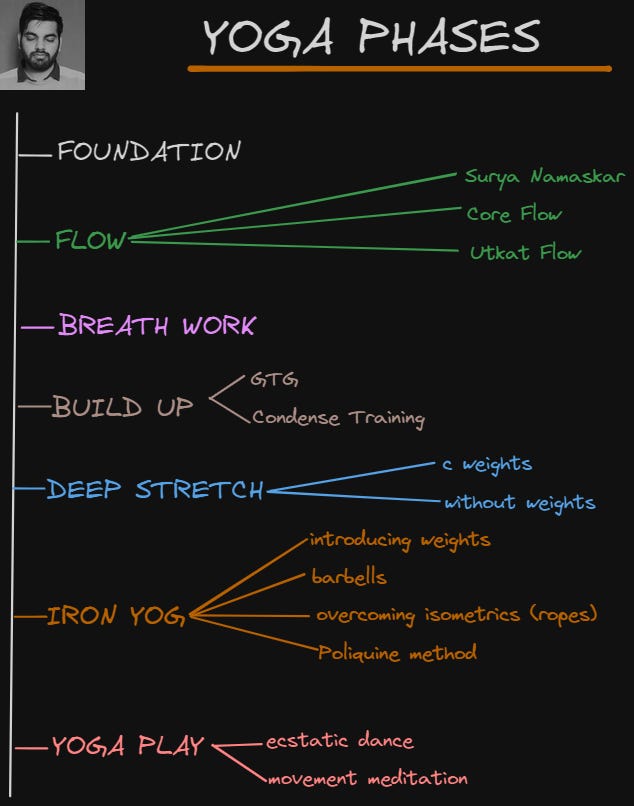 YOGA PHASES
FOUNDATION
FLOW
Surya Namaskar
Core Flow
Utkat Flow
BREATH WORK
BUILD UP
GTG
Condense Training
DEEP STRETCH
c weights
without weights
IRON YOG
introducing weights
barbells
overcoming isometrics (ropes)
Poliquine method
YOGA PLAY
ecstatic dance
movement meditation